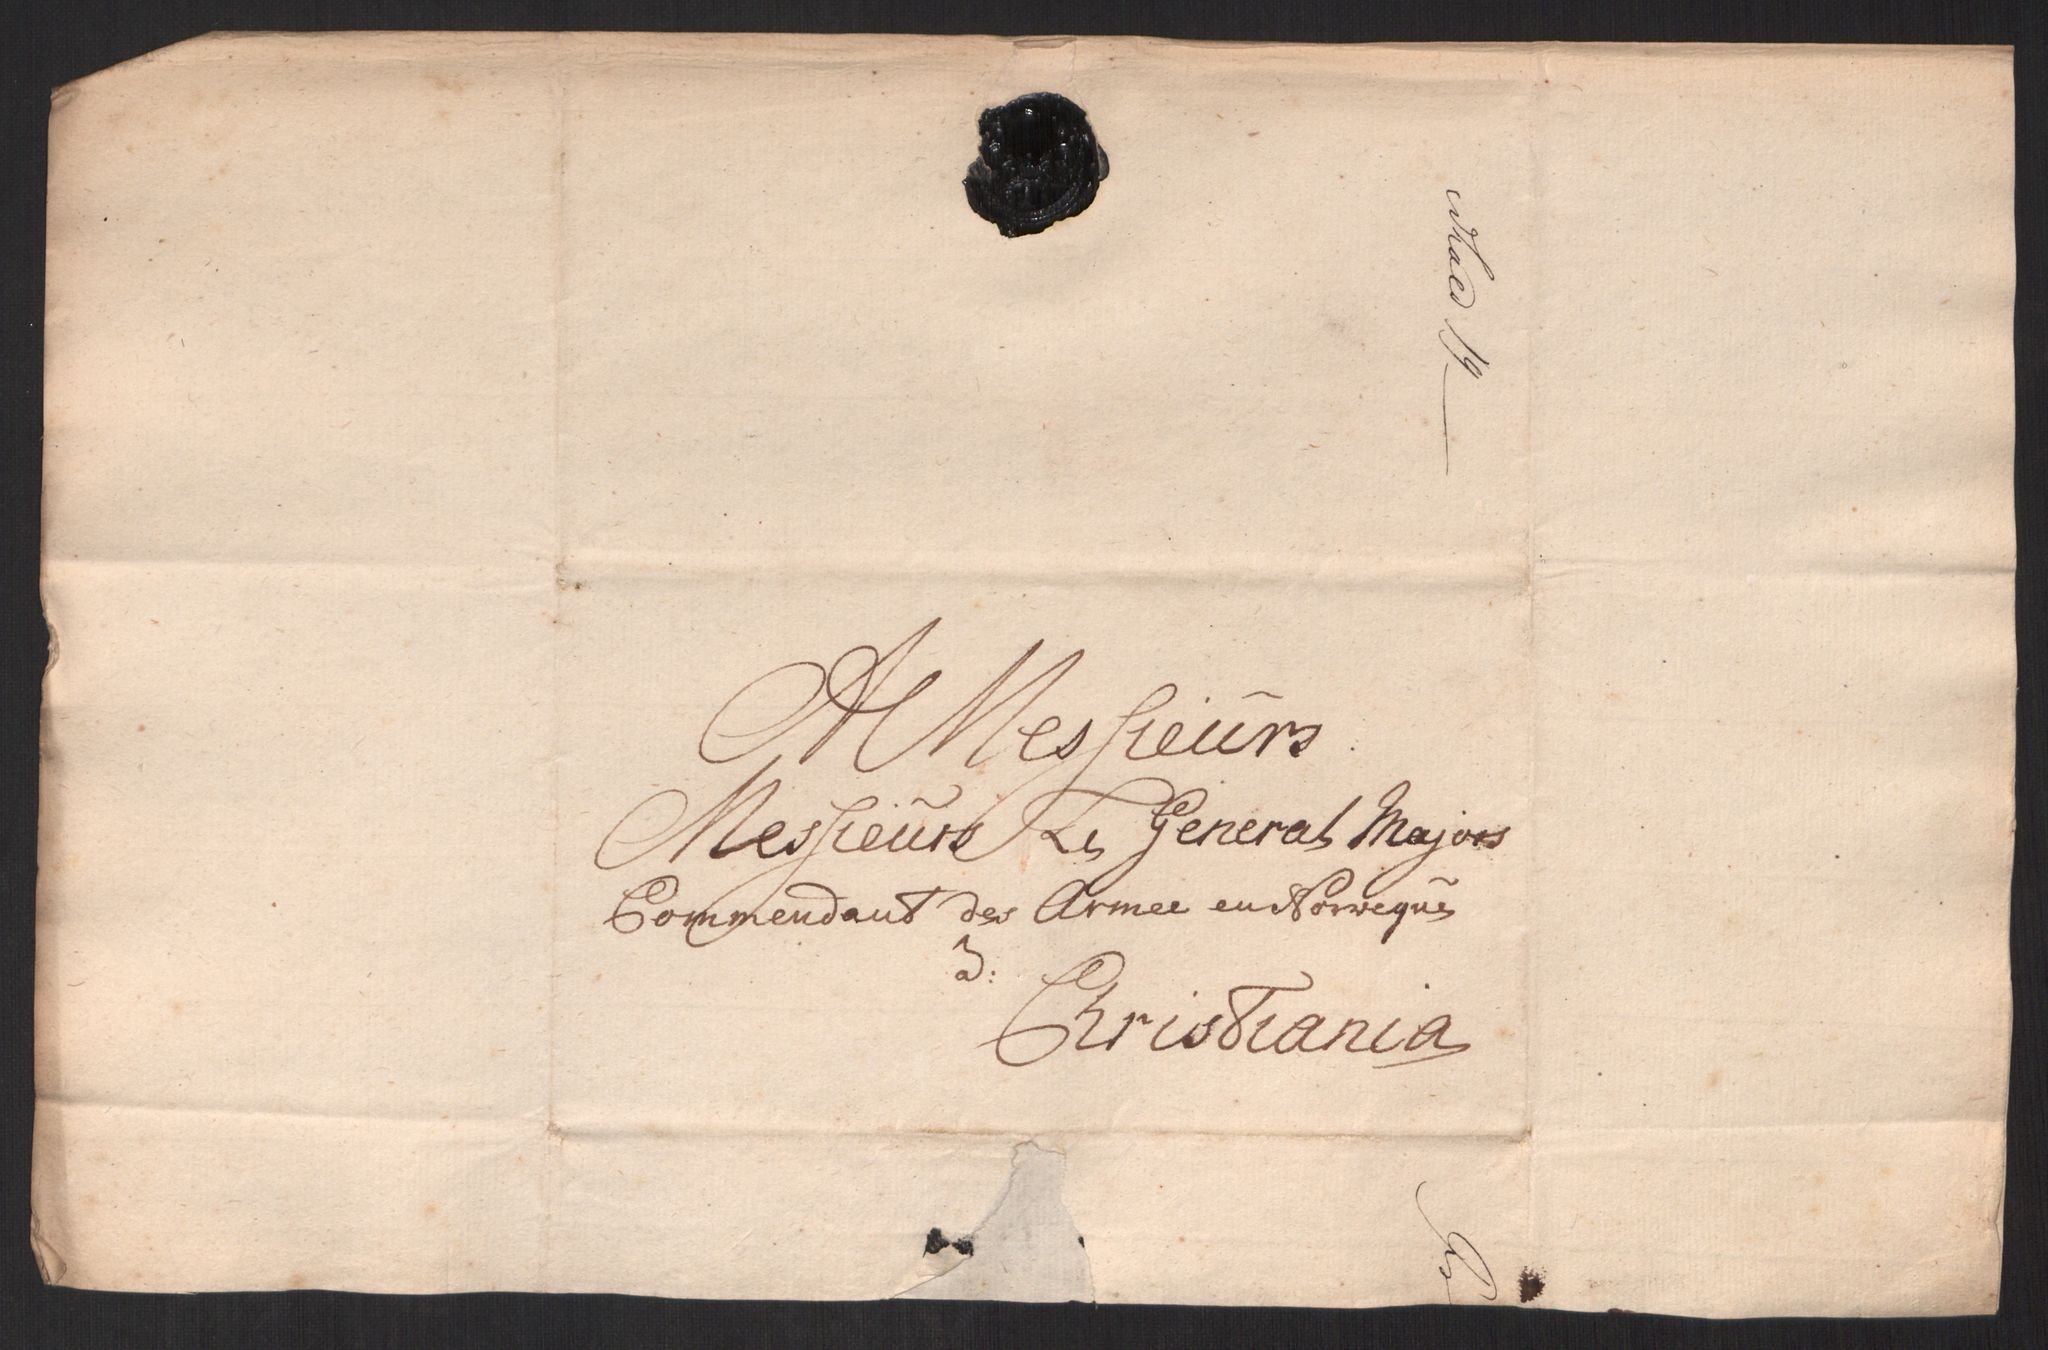 A Messieurs
Messieurs Les General Majors
Commendant des Armee en Norwegue
a:
Christiania